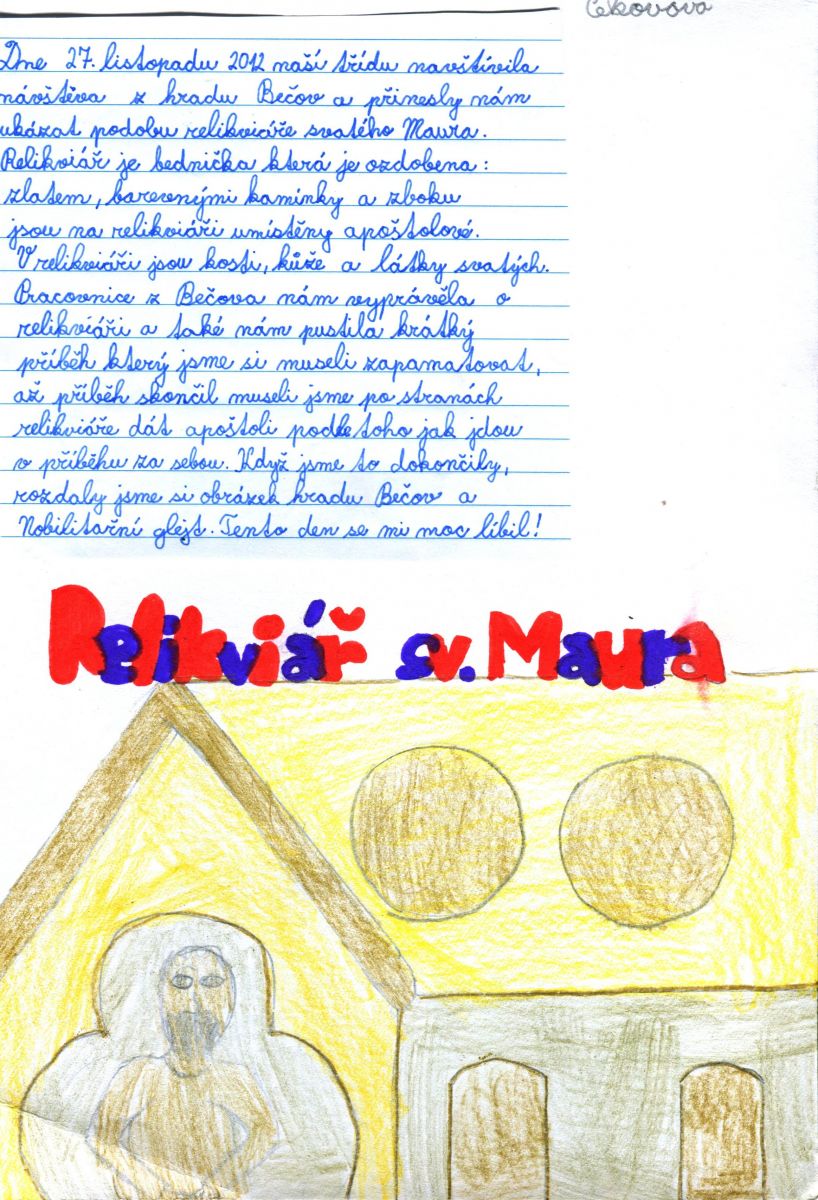 Cekovova
Dne 27. listopadu 2012 naší třídu navštívila
návštěva z hradu Bečov a přinesly nám
ukázat podobu relikviáře svatého Maura.
Relikviář je bednička která je ozdobena:
zlatem, barevnými kamínky a zboku
jsou na relikviáři umístěny apoštolové.
V relikviáři jsou kosti, kůže a látky svatých.
Pracovnice z Bečova nám vyprávěla o
relikviáři a také nám pustila krátký
příběh který jsme si museli zapamatovat,
až příběh skončil museli jsme po stranách
relikviáře dát apoštoli podle toho jak jdou
v příběhu za sebou. Když jsme to dokončily,
rozdaly jsme si obrázek hradu Bečov a
Nobilitační glejt. Tento den se mi moc líbil!
Relikviář sv. Maura